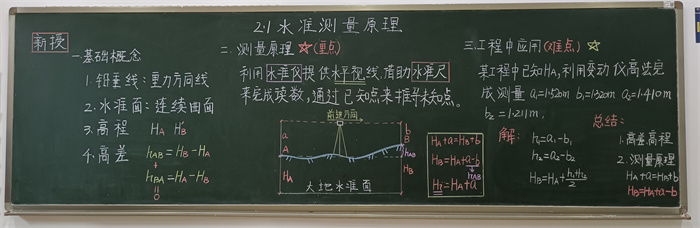 2.1 水准测量原理
新授
一.基础概念
1.铅垂线:重力方向线
2.水准面:连续曲面
3.高程 HA H'B
4.高差 hAB=HB-HA
+
hBA=HA-HB
||
0
二.测量原理 ☆(重点)
利用水准仪提供水平视线,借助水准尺
来完成读数,通过已知点来推导未知点。
前进方向
a
A
HA
b
B
hAB
HB
大地水准面
HA+a=HB+b
HB=HA+a-b
hAB
Hi=HA+a
三.工程中应用(难点)☆
某工程中已知HA,利用变动仪高法完
成测量 a1=1.520m b1=1.320m a2=1.410m
b2=1.211m,
解:
h1=a1-b1
h2=a2-b2
HB=HA+h1+h2/2
总结:
1.高差、高程
2.测量原理
HA+a=HB+b
HB=HA+a-b